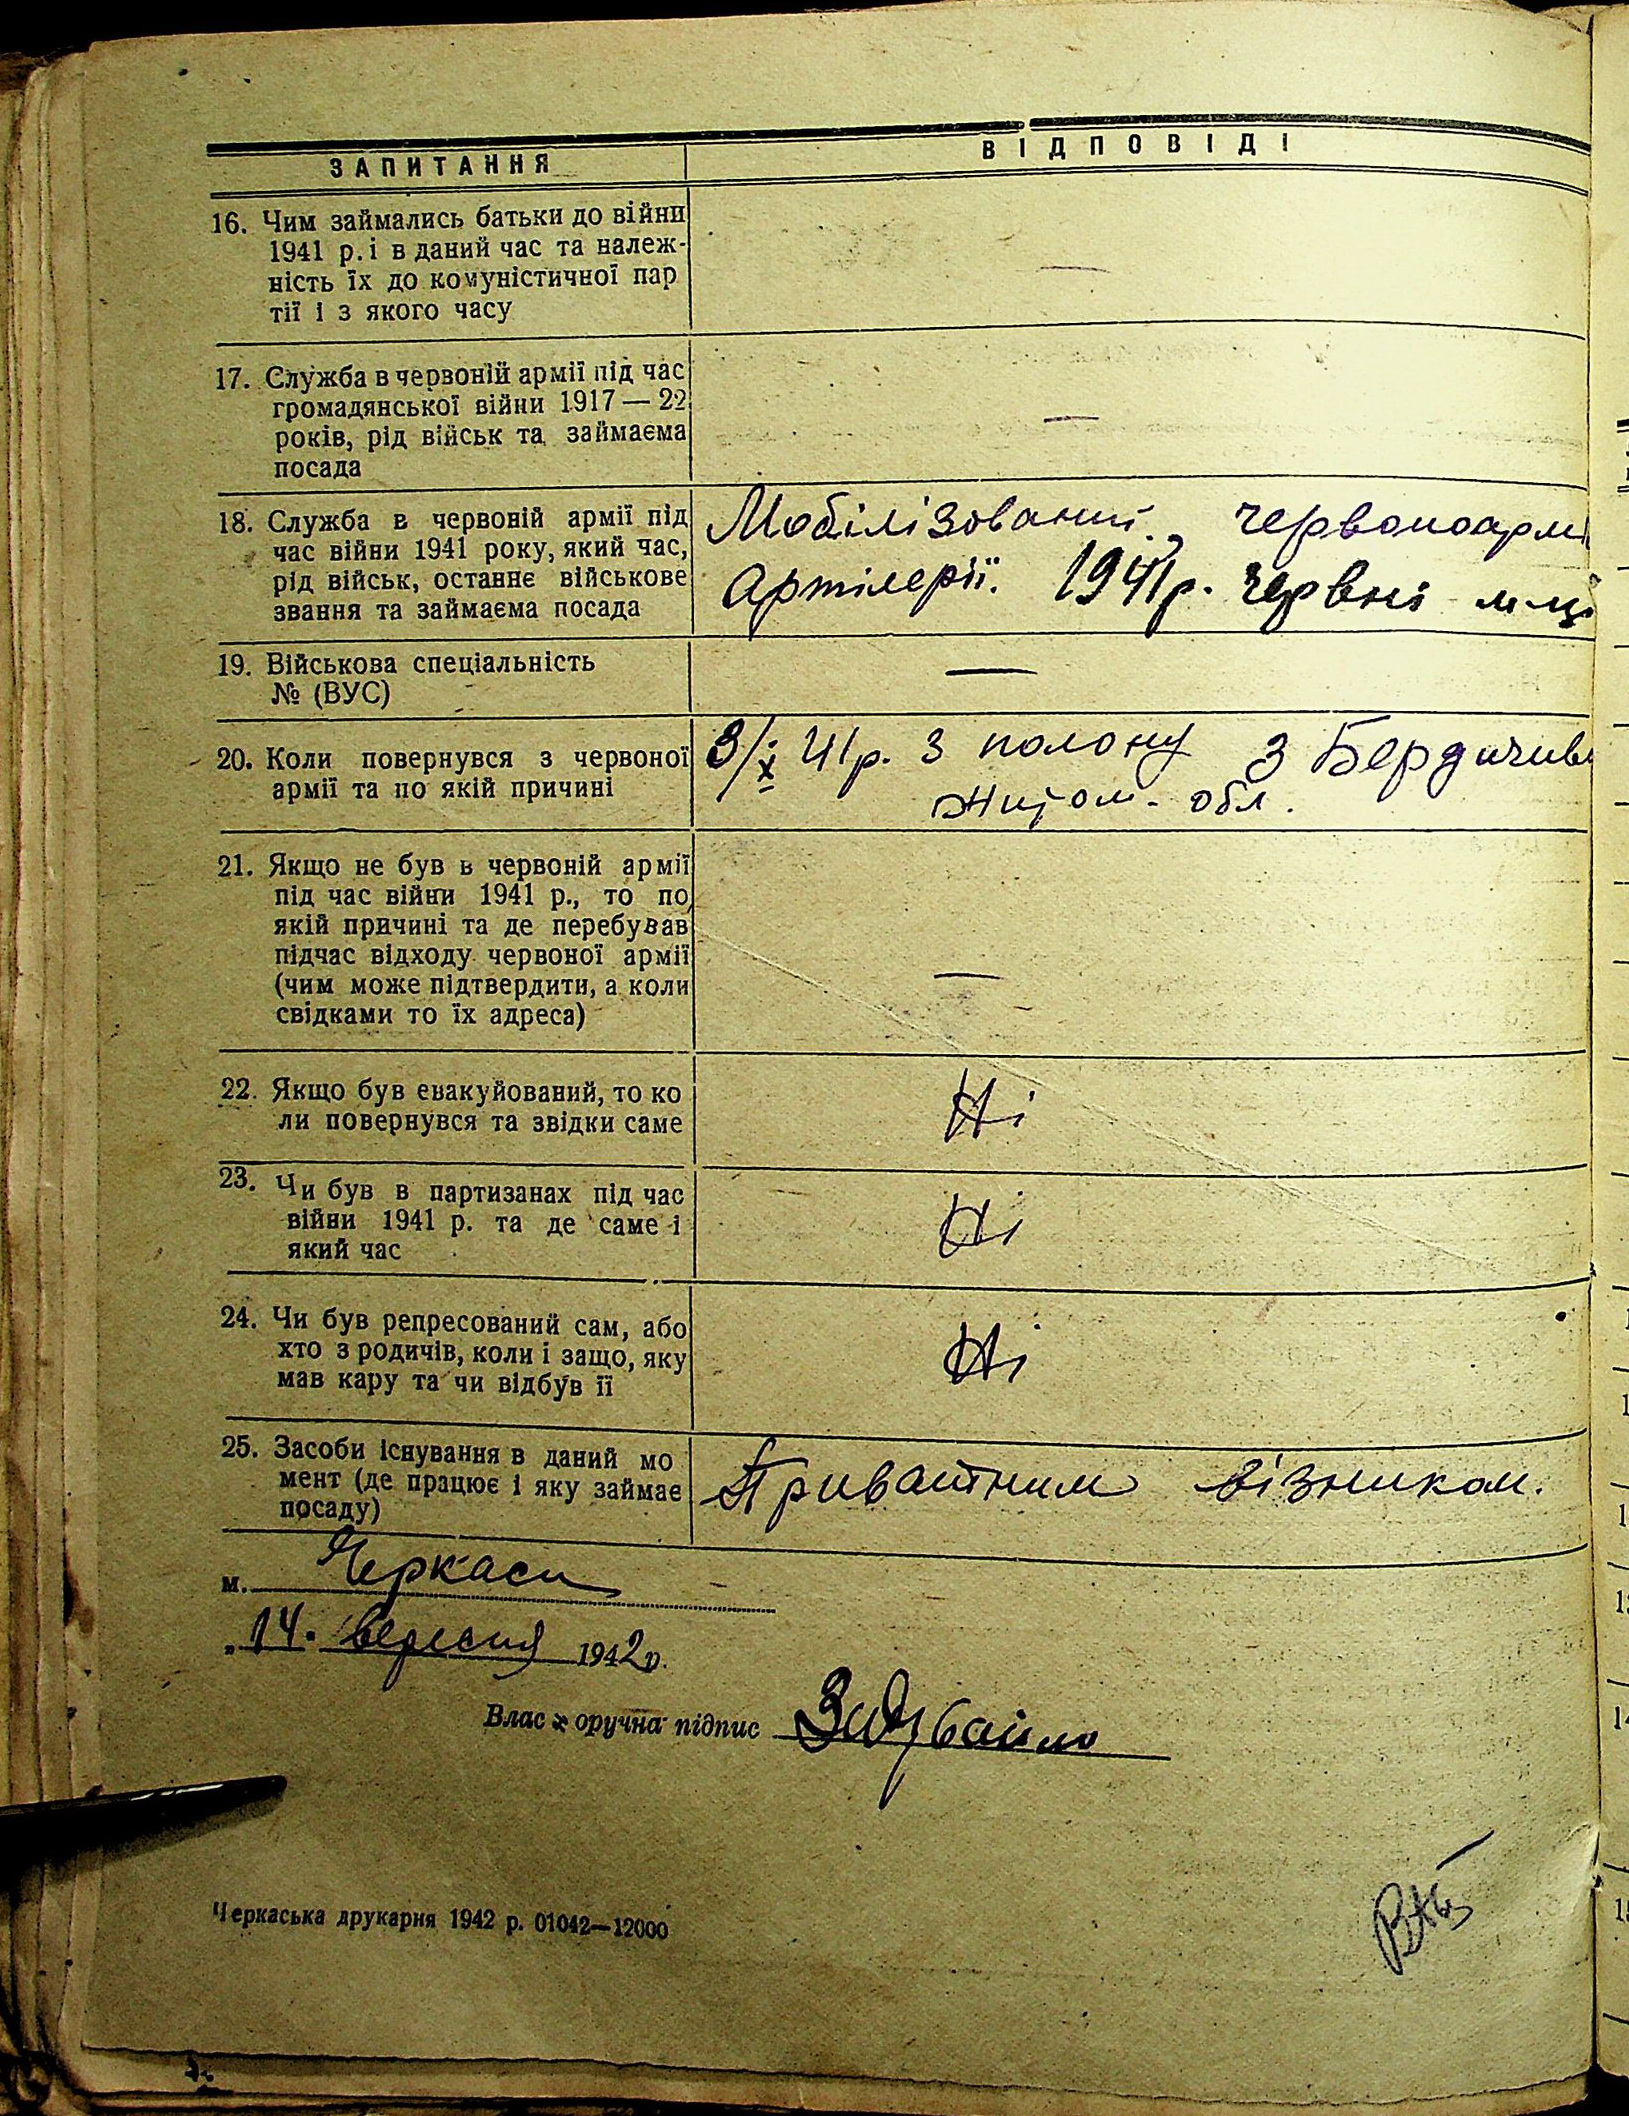 ЗАПИТАННЯ
ВІДПОВІДІ
16. Чим займались батьки до війни
1941 р. і в даний час та належ-
ність їх до комуністичної пар
тії і з якого часу
—
17. Служба в червоній армії під час
громадянської війни 1917 — 22
років, рід військ та займаєма
посада
—
18. Служба в червоній армії під
час війни 1941 року, який час,
рід військ, останнє військове
звання та займаєма посада
Мобілізований, червоноармі
Артілерії. 1941 р. червні м-ці
19. Військова спеціальність
№ (ВУС)
—
20. Коли повернувся з червоної
армії та по якій причині
3/X 41р. з полону з Бердичив
Житом. обл.
21. Якщо не був в червоній армії
під час війни 1941 р., то по
якій причині та де перебував
підчас відходу червоної армії
(чим може підтвердити, а коли
свідками то їх адреса)
—
22. Якщо був евакуйований, то ко
ли повернувся та звідки саме
Ні
23. Чи був в партизанах під час
війни 1941 р. та де саме і
який час
Ні
24. Чи був репресований сам, або
хто з родичів, коли і защо, яку
мав кару та чи відбув її
Ні
25. Засоби існування в даний мо
мент (де працює і яку займає
посаду)
Приватним візником.
м. Черкаси
„14. вересня 1942 р.
Власноручна підпис
Черкаська друкарня 1942 р. 01042—12000